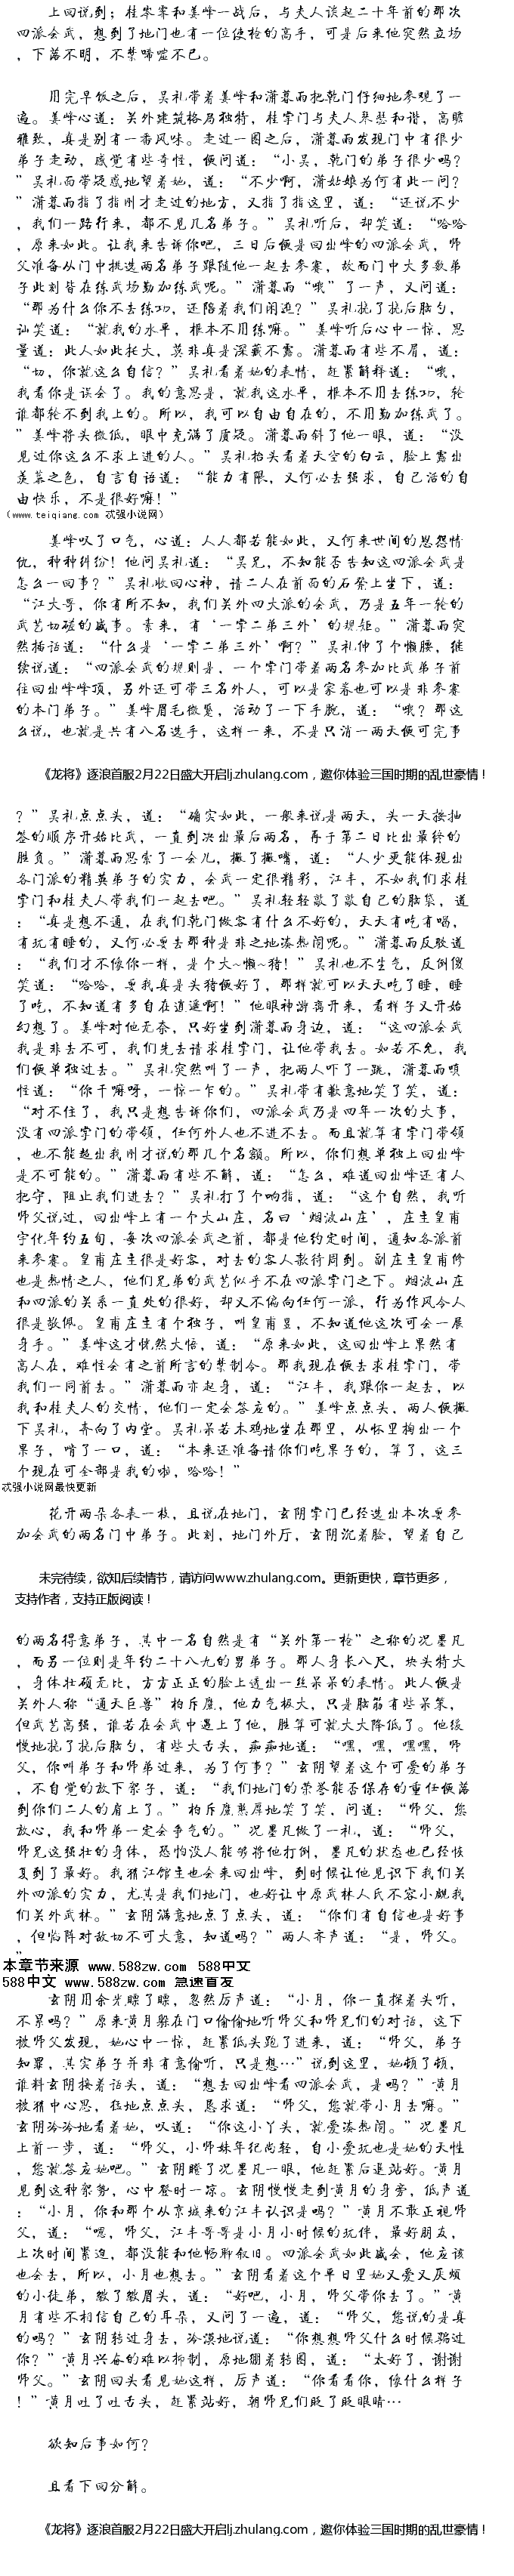 上回说到；桂岑案和姜峰一战后，与夫人谈起二十年前的那次
四派会武，想到了地门也有一位使枪的高手，可是后来他突然立场
，下落不明，不禁唏嘘不已。
用完早饭之后，吴礼带着姜峰和潇暮雨把乾门仔细地参观了一
遍。姜峰心道：关外建筑格局独特，桂掌门与夫人琴瑟和谐，高贻
雅致，真是别有一番风味。走过一圈之后，潇暮雨发现门中有很少
弟子走动，感觉有些奇怪，便问道：“小吴，乾门的弟子很少吗？
”吴礼面带疑惑地望着她，道：“不少啊，潇姑娘为何有此一问？”
潇暮雨指了指刚才走过的地方，又指了指这里，道：“还说不少
，我们一路行来，都不见几名弟子。”吴礼听后，却笑道：“哈哈
，原来如此。让我来告诉你吧，三日后便是回出峰的四派会武，师
父准备从门中挑选两名弟子跟随他一起去参赛，故而门中大多数弟
子此刻皆在练武场勤加练武呢。”潇暮雨“哦”了一声，又问道：
“那为什么你不去练功，还陪着我们闲逛？”吴礼挠了挠后脑勺，
讪笑道：“就我的水平，根本不用练嘛。”姜峰听后心中一惊，思
量道：此人如此托大，莫非真是深藏不露。潇暮雨有些不屑，道：
“切，你就这么自信？”吴礼看着她的表情，赶紧解释道：“哦，
我看你是误会了。我的意思是，就我这水平，根本不用去练功，轮
谁都轮不到我上的。所以，我可以自由自在的，不用勤加练武了。
”姜峰将头微低，眼中充满了质疑。潇暮雨斜了他一眼，道：“没
见过你这么不求上进的人。”吴礼抬头看着天空的白云，脸上露出
羡慕之色，自言自语道：“能力有限，又何必去强求，自己活的自
由快乐，不是很好嘛！”
（www.teiqiang.com 忒强小说网）
姜峰叹了口气，心道：人人都若能如此，又何来世间的恩怨情
仇，种种纠纷！他问吴礼道：“吴兄，不知能否告知这四派会武是
怎么一回事？”吴礼收回心神，请二人在前面的石凳上坐下，道：
“江大哥，你有所不知，我们关外四大派的会武，乃是五年一轮的
武艺切磋的盛事。素来，有‘一掌二弟三外’的规矩。”潇暮雨突
然插话道：“什么是‘一掌二弟三外’啊？”吴礼伸了个懒腰，继
续说道：“四派会武的规则是，一个掌门带着两名参加比武弟子前
往回出峰峰顶，另外还可带三名外人，可以是家眷也可以是非参赛
的本门弟子。”姜峰眉毛微蹙，活动了一下手腕，道：“哦？那这
么说，也就是共有八名选手，这样一来，不是只消一两天便可完事
《龙将》逐浪首服2月22日盛大开启lj.zhulang.com，邀你体验三国时期的乱世豪情！
？”吴礼点点头，道：“确实如此，一般来说是两天，头一天按抽
签的顺序开始比武，一直到决出最后两名，再于第二日比出最终的
胜负。”潇暮雨思索了一会儿，撅了撅嘴，道：“人少更能体现出
各门派的精英弟子的实力，会武一定很精彩，江丰，不如我们求桂
掌门和桂夫人带我们一起去吧。”吴礼轻轻敲了敲自己的脑袋，道
：“真是想不通，在我们乾门做客有什么不好的，天天有吃有喝，
有玩有睡的，又何必要去那种是非之地凑热闹呢。”潇暮雨反驳道
：“我们才不像你一样，是个大~懒~猪！”吴礼也不生气，反倒傻
笑道：“哈哈，要我真是头猪便好了，那样就可以天天吃了睡，睡
了吃，不知道有多自在逍遥啊！”他眼神游离开来，看样子又开始
幻想了。姜峰对他无奈，只好坐到潇暮雨身边，道：“这四派会武
我是非去不可，我们先去请求桂掌门，让他带我去。如若不允，我
们便单独过去。”吴礼突然叫了一声，把两人吓了一跳，潇暮雨嗔
怪道：“你干嘛呀，一惊一乍的。”吴礼带有歉意地笑了笑，道：
“对不住了，我只是想告诉你们，四派会武乃是四年一次的大事，
没有四派掌门的带领，任何外人也不进不去。而且就算有掌门带领
，也不能超出我刚才说的那几个名额。所以，你们想单独上回出峰
是不可能的。”潇暮雨有些不解，道：“怎么，难道回出峰还有人
把守，阻止我们进去？”吴礼打了个响指，道：“这个自然，我听
师父说过，回出峰上有一个大山庄，名曰‘烟波山庄’，庄主皇甫
宇化年约五旬，每次四派会武之前，都是他约定时间，通知各派前
来参赛。皇甫庄主很是好客，对去的客人款待周到。副庄主皇甫修
也是热情之人，他们兄弟的武艺似乎不在四派掌门之下。烟波山庄
和四派的关系一直处的很好，却又不偏向任何一派，行为作风令人
很是敬佩。皇甫庄主有个独子，叫皇甫昱，不知道他这次可会一展
身手。”姜峰这才恍然大悟，道：“原来如此，这回出峰上果然有
高人在，难怪会有之前所言的禁制令。那我现在便去求桂掌门，带
我们一同前去。”潇暮雨亦起身，道：“江丰，我跟你一起去，以
我和桂夫人的交情，他们一定会答应的。”姜峰点点头，两人便撇
下吴礼，奔向了内堂。吴礼呆若木鸡地坐在那里，从怀里掏出一个
果子，啃了一口，道：“本来还准备请你们吃果子的，算了，这三
个现在可全部是我的啦，哈哈！”
忒强小说网最快更新
花开两朵各表一枝，且说在地门，玄阴掌门已经选出本次要参
加会武的两名门中弟子。此刻，地门外厅，玄阴沉着脸，望着自己
未完待续，欲知后续情节，请访问www.zhulang.com。更新更快，章节更多，
支持作者，支持正版阅读！
的两名得意弟子，其中一名自然是有“关外第一枪”之称的况墨凡
，而另一位则是年约二十八九的男弟子。那人身长八尺，块头特大
，身体壮硕无比，方方正正的脸上透出一丝呆呆的表情。此人便是
关外人称“通天巨兽”柏斥鹰，他力气极大，只是脑筋有些呆笨，
但武艺高强，谁若在会武中遇上了他，胜算可就大大降低了。他缓
慢地挠了挠后脑勺，有些大舌头，痴痴地道：“嘿，嘿，嘿嘿，师
父，你叫弟子和师弟过来，为了何事？”玄阴望着这个可爱的弟子
，不自觉的放下架子，道：“我们地门的荣誉能否保存的重任便落
到你们二人的肩上了。”柏斥鹰憨厚地笑了笑，回道：“师父，您
放心，我和师弟一定会争气的。”况墨凡做了一礼，道：“师父，
师兄这强壮的身体，恐怕没人能够将他打倒，墨凡的状态也已经恢
复到了最好。我猜江馆主也会来回出峰，到时候让他见识下我们关
外四派的实力，尤其是我们地门，也好让中原武林人氏不容小觑我
们关外武林。”玄阴满意地点了点头，道：“你们有自信也是好事
，但临阵对敌切不可大意，知道吗？”两人齐声道：“是，师父。
”
本章节来源 www.588zw.com 588中文
588中文 www.588zw.com 急速首发
玄阴用余光瞟了瞟，忽然厉声道：“小月，你一直探着头听，
不累吗？”原来黄月躲在门口偷偷地听师父和师兄们的对话，这下
被师父发现，她心中一惊，赶紧低头跑了进来，道：“师父，弟子
知罪，其实弟子并非有意偷听，只是想…”说到这里，她顿了顿，
谁料玄阴接着话头，道：“想去回出峰看四派会武，是吗？”黄月
被猜中心思，猛地点点头，恳求道：“师父，您就带小月去嘛。”
玄阴冷冷地看着她，叹道：“你这小丫头，就爱凑热闹。”况墨凡
上前一步，道：“师父，小师妹年纪尚轻，自小爱玩也是她的天性
，您就答应她吧。”玄阴瞪了况墨凡一眼，他赶紧后退站好。黄月
见到这种架势，心中登时一凉。玄阴慢慢走到黄月的身旁，低声道
：“小月，你和那个从京城来的江丰认识是吗？”黄月不敢正视师
父，道：“嗯，师父，江丰哥哥是小月小时候的玩伴，最好朋友，
上次时间紧迫，都没能和他畅聊叙旧。四派会武如此盛会，他应该
也会去，所以，小月也想去。”玄阴看着这个平日里她又爱又厌烦
的小徒弟，皱了皱眉头，道：“好吧，小月，师父带你去了。”黄
月有些不相信自己的耳朵，又问了一遍，道：“师父，您说的是真
的吗？”玄阴转过身去，冷漠地说道：“你想想师父什么时候骗过
你？”黄月兴奋的难以抑制，原地蹦着转圈，道：“太好了，谢谢
师父。”玄阴回头看见她这样，厉声道：“你看看你，像什么样子
！”黄月吐了吐舌头，赶紧站好，朝师兄们眨了眨眼睛…
欲知后事如何？
且看下回分解。
《龙将》逐浪首服2月22日盛大开启lj.zhulang.com，邀你体验三国时期的乱世豪情！